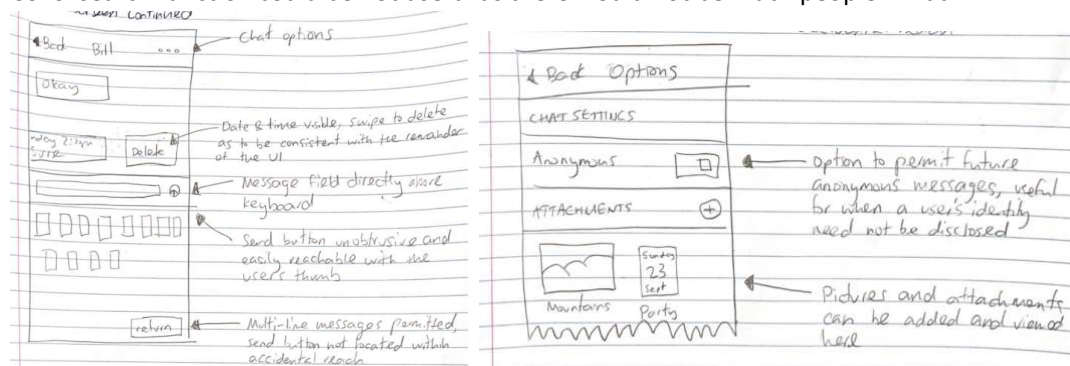 continued
Back Bill ...
Chat options
Okay
2:
Delete
Date & time visible, swipe to delete
as to be consistent with the remainder
of the UI
Message field directly above
keyboard
Send button unobtrusive and
easily reachable with the
user's thumb
return
Multi-line messages permitted,
send button not located within
accidental reach
Back Options
CHAT SETTINGS
Anonymous
Option to permit future
anonymous messages, useful
for when a user's identity
need not be disclosed
ATTACHMENTS
Sunday
23
Sept
Mountains Party
Pictures and attachments
can be added and viewed
here